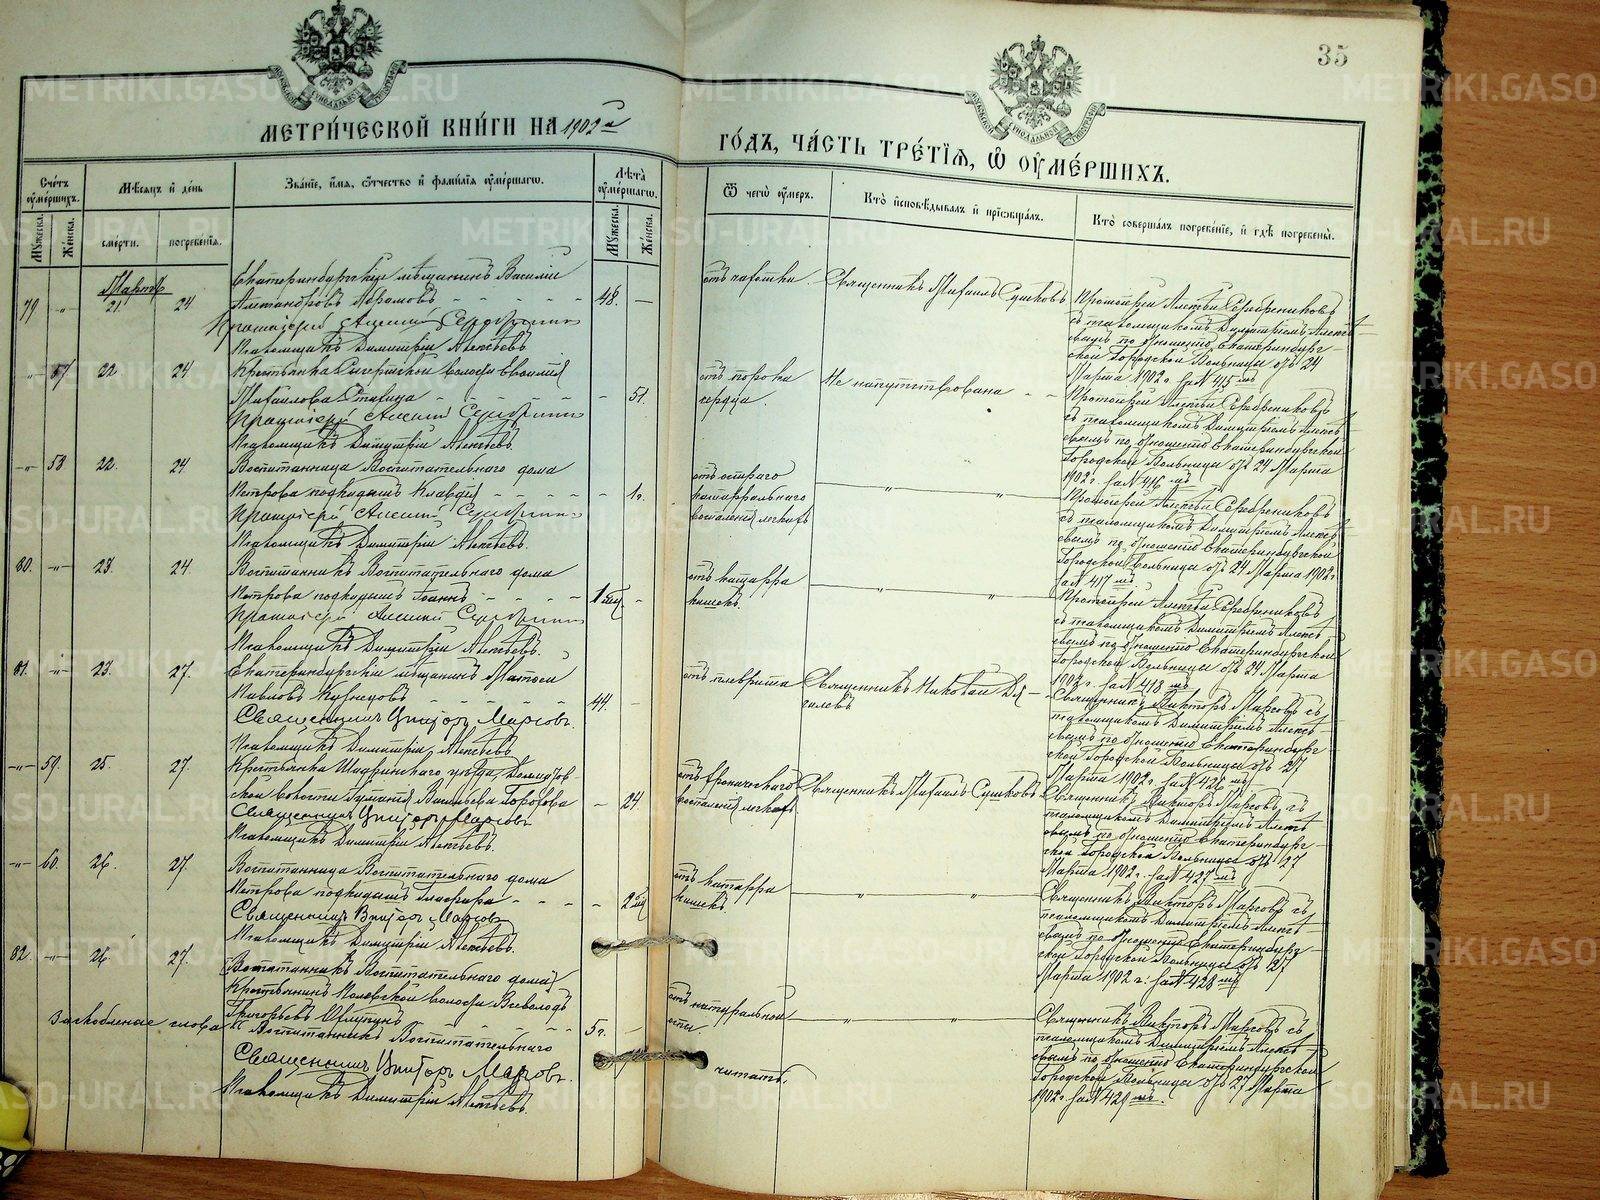 35
МЕТРИЧЕСКОЙ КНИГИ НА 1902й ГОДЪ, ЧАСТЬ ТРЕТІЯ, Ѿ ОУМЕРШИХЪ.
Счетъ оумершихъ.
Мѣсяцъ и день
Званіе, имя, отчество и фамилія оумершагѡ.
Лѣта оумершагѡ.
Ѿ чегѡ оумеръ.
Кто исповѣдывалъ и пріобщалъ.
Кто совершалъ погребеніе, и гдѣ погребены.
Мужеска.
Женска.
смерти.
погребенія.
Мужеска.
Женска.
Мартъ
79 -"- 21. 24
Екатеринбургскій мѣщанинъ Василій
Абрамовъ 48. —
Протоіерей Алексій
Псаломщикъ Димитрій Алексѣевъ.
Священникъ Михаилъ Сушковъ
Протоіерей Алексѣй Серебрениковъ
съ псаломщикомъ Димитріемъ Алексѣ-
евымъ по отношенію Екатеринбург-
ской Городской Больницы отъ 24
Марта 1902 г. за № 415 мъ
-"- 57 22 24
Крестьянка волости
Михайлова 51.
Протоіерей Алексій
Псаломщикъ Димитрій Алексѣевъ.
отъ порока
сердца.
Не напутствована
Протоіерей Алексѣй Серебрениковъ
съ псаломщикомъ Димитріемъ Алексѣ-
евымъ по отношенію Екатеринбургской
Городской Больницы отъ 24 Марта
1902 г. за № 416 мъ
-"- 58 22. 24
Воспитанница Воспитательнаго дома
Петрова подкидышъ Клавдія - 1 г.
Протоіерей Алексій
Псаломщикъ Димитрій Алексѣевъ.
отъ остраго
катарральнаго
воспаленія легкихъ
Протоіерей Алексѣй Серебрениковъ
съ псаломщикомъ Димитріемъ Алексѣ-
евымъ по отношенію Екатеринбургской
Городской Больницы отъ 24 Марта 1902 г.
за № 417 мъ
80. -"- 23. 24
Воспитанникъ Воспитательнаго дома
Петрова подкидышъ Іоаннъ 1 мѣс
Протоіерей Алексій
Псаломщикъ Димитрій Алексѣевъ.
отъ катарра
кишекъ.
Протоіерей Алексѣй Серебрениковъ
съ псаломщикомъ Димитріемъ Алексѣ-
евымъ по отношенію Екатеринбургской
Городской Больницы отъ 24 Марта
1902 г. за № 418 мъ
81. -"- 23. 27.
Екатеринбургскій мѣщанинъ Матвѣй
Павловъ Кузнецовъ 44.
Священникъ Викторъ Марковъ.
Псаломщикъ Димитрій Алексѣевъ
отъ плеврита
Священникъ Николай
Священникъ Викторъ Марковъ съ
псаломщикомъ Димитріемъ Алексѣ-
евымъ по отношенію Екатеринбург-
ской Городской Больницы отъ 27
Марта 1902 г. за № 426 мъ
-"- 59. 25. 27.
Крестьянка Шадринскаго уѣзда,
ской волости Васильева - 24.
Священникъ Викторъ Марковъ
Псаломщикъ Димитрій Алексѣевъ.
отъ хроническаго
воспаленія легкихъ
Священникъ Михаилъ Сушковъ
Священникъ Викторъ Марковъ съ
псаломщикомъ Димитріемъ Алексѣ-
евымъ по отношенію Екатеринбург-
ской Городской Больницы отъ 27
Марта 1902 г. за № 427 мъ
-"- 60. 26. 27
Воспитанница Воспитательнаго дома
Петрова подкидышъ Глафира - 2 мѣс
Священникъ Викторъ Марковъ
Псаломщикъ Димитрій Алексѣевъ.
отъ катарра
кишекъ.
Священникъ Викторъ Марковъ съ
псаломщикомъ Димитріемъ Алексѣ-
евымъ по отношенію Екатеринбург-
ской Городской Больницы отъ 27
Марта 1902 г. за № 428 мъ
82. -"- 26 27.
Воспитанникъ Воспитательнаго дома
Крестьянинъ волости Всеволодъ
Григорьевъ 5 г.
отъ натуральной
оспы
Зачеркнутые слова "Воспитанникъ Воспитательнаго
читать.
Священникъ Викторъ Марковъ.
Псаломщикъ Димитрій Алексѣевъ.
Священникъ Викторъ Марковъ съ
псаломщикомъ Димитріемъ Алексѣ-
евымъ по отношенію Екатеринбургской
Городской Больницы отъ 27 Марта
1902 г. за № 429 мъ.
METRIKI.GASO-URAL.RU